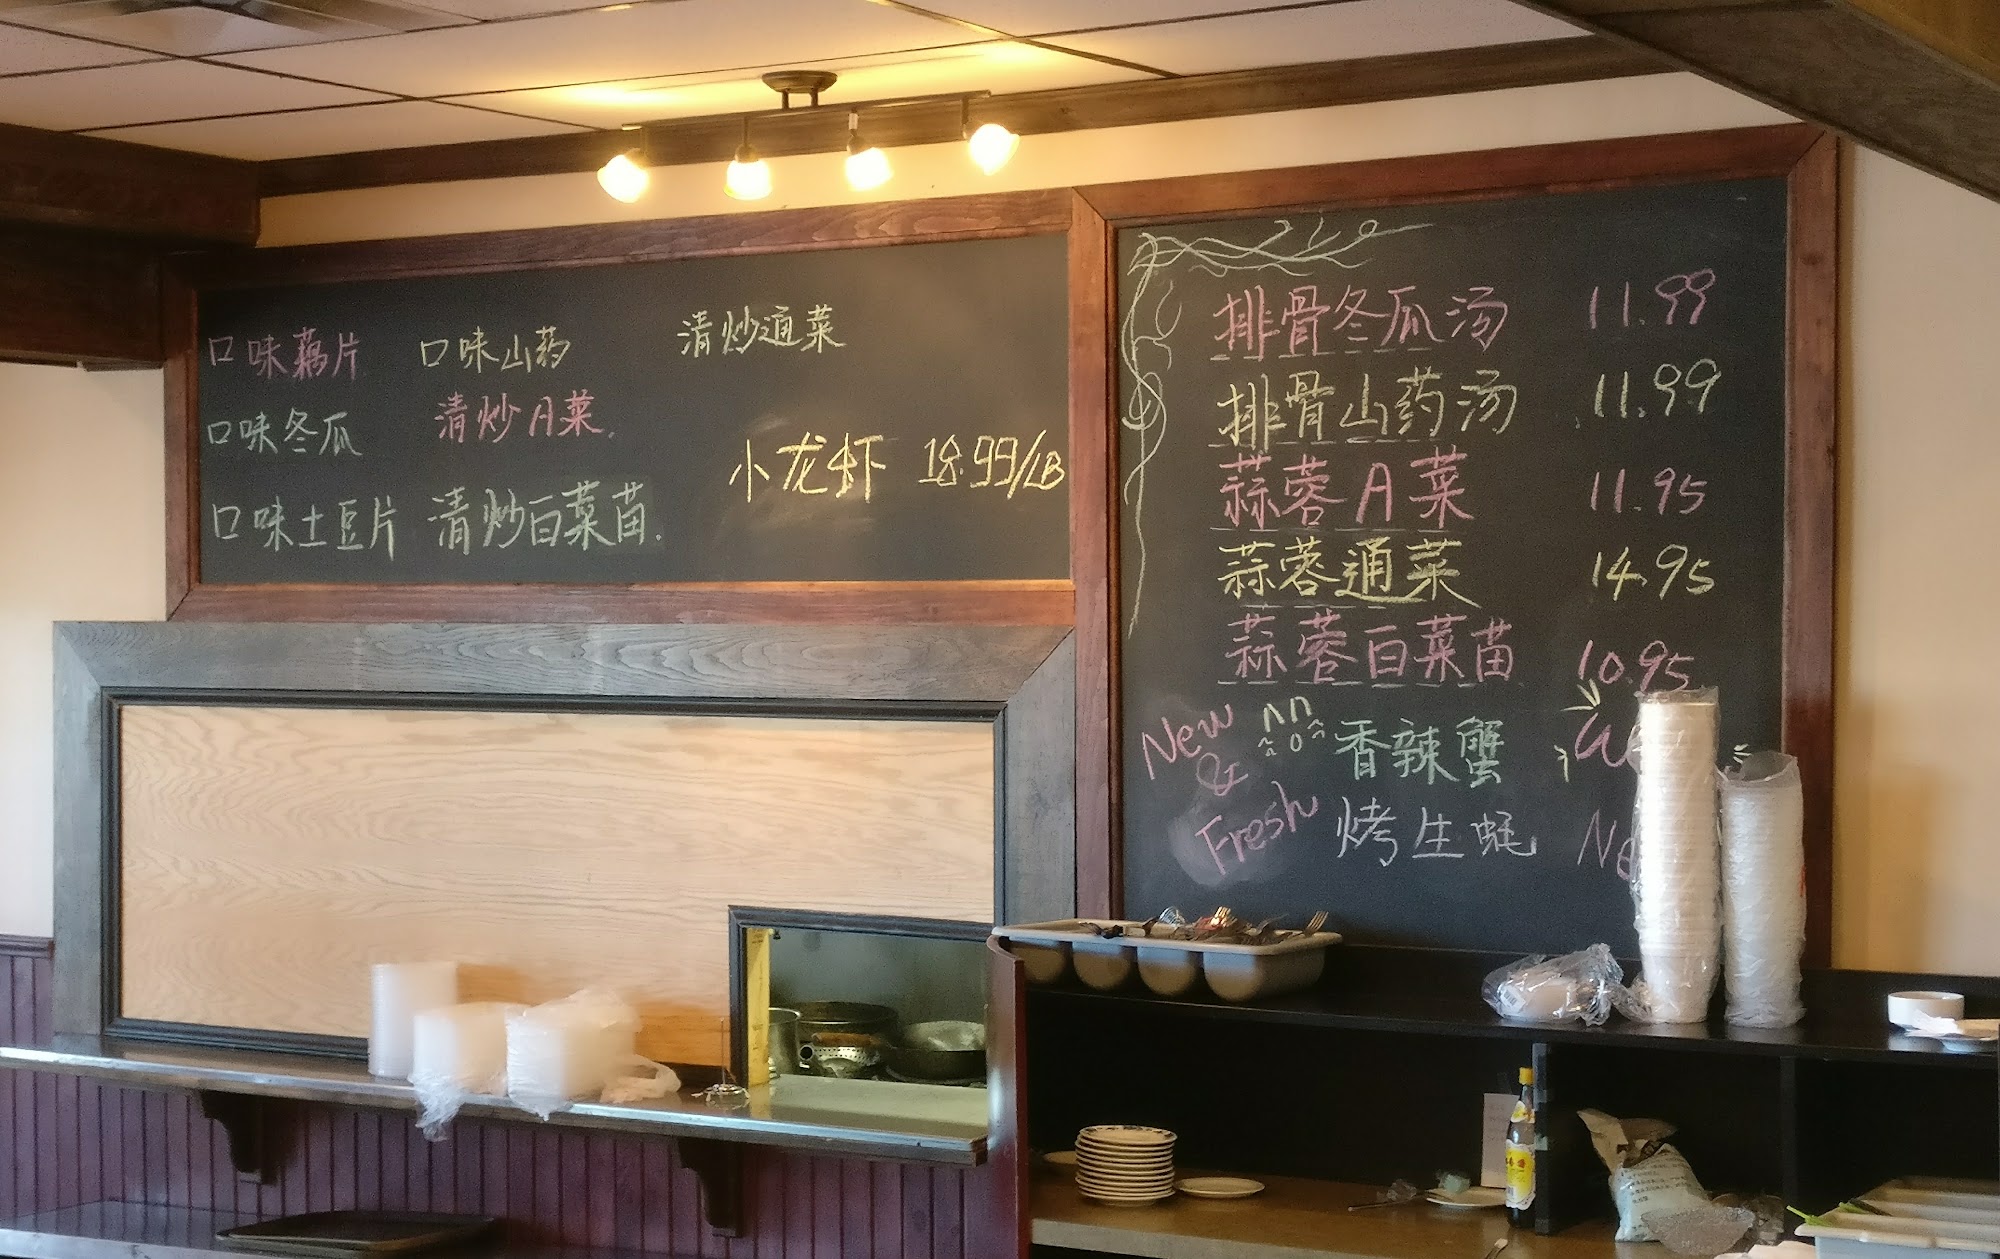 口味藕片 口味山药 清炒通菜
口味冬瓜 清炒A菜.
小龙虾 18.99/LB
口味土豆片 清炒白菜苗.
排骨冬瓜汤 11.99
排骨山药汤 11.99
蒜蓉A菜 11.95
蒜蓉通菜 14.95
蒜蓉白菜苗 10.95
New & Fresh
香辣蟹
烤生蚝